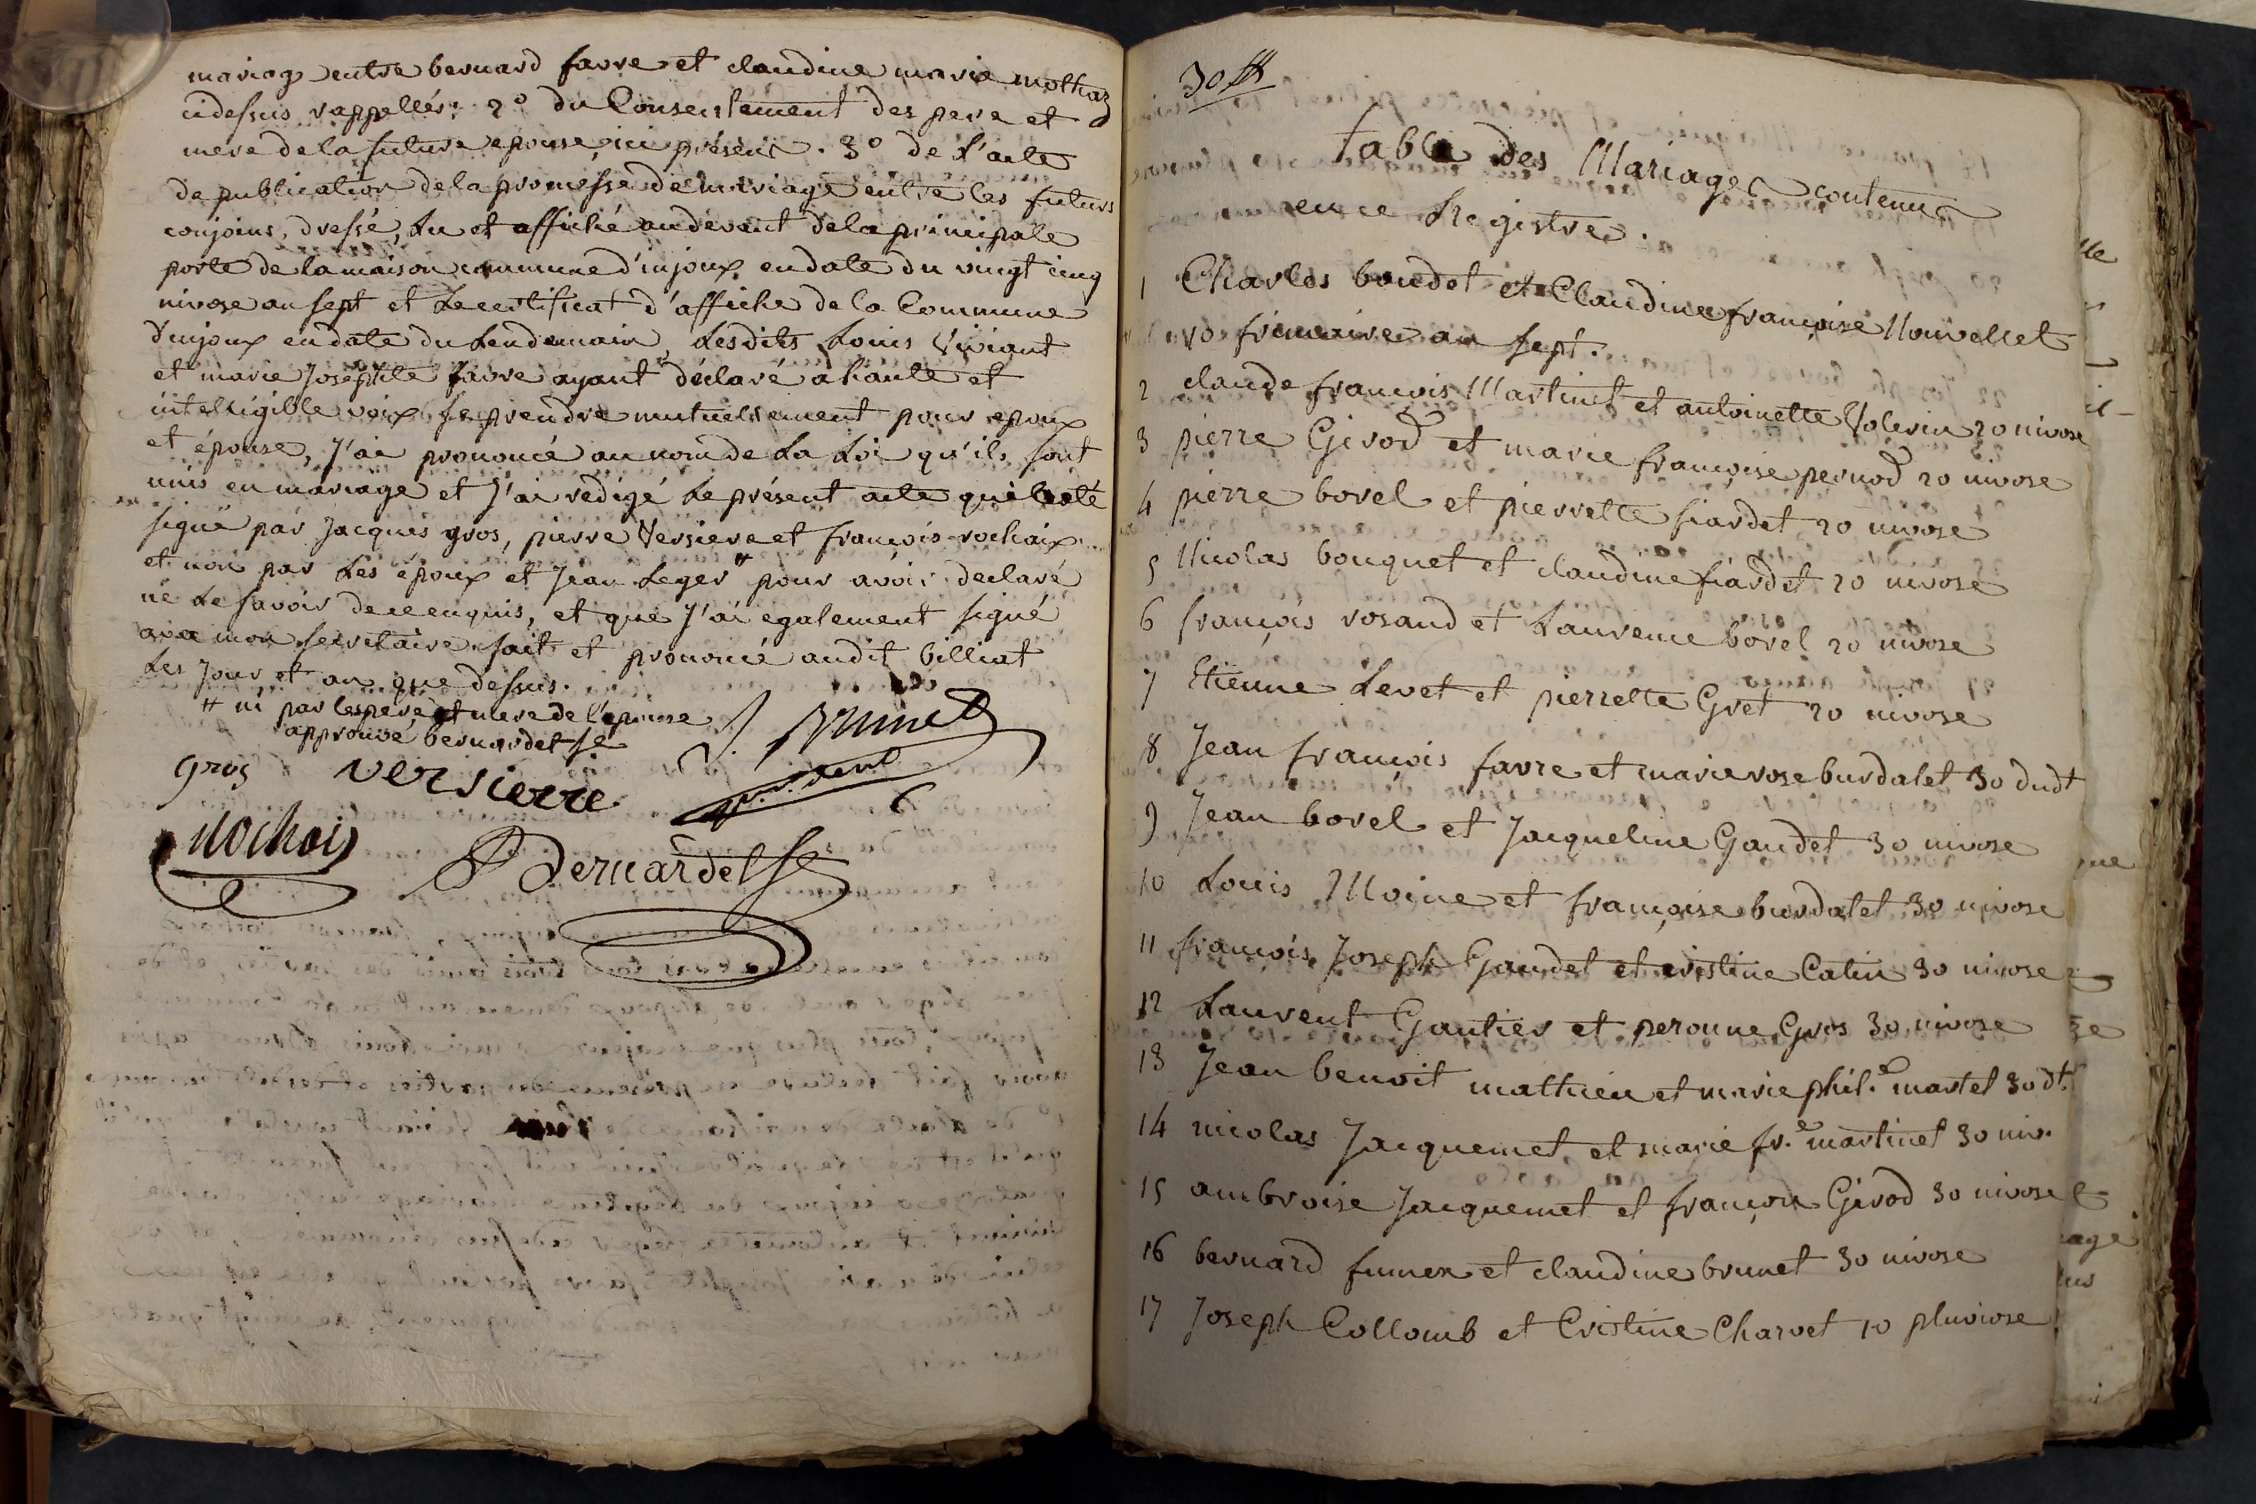 mariage entre bernard favre et claudine marie mothaz
cidessus rappellés. 2° du Consentement des pere et
mere de la future epouse, ici présens. 3° de l'acte
de publication de la promesse de mariage entre les futurs
conjoins, dressé, Lu et affiché audevant de la principale
porte de la maison commune d'injoux en date du vingt cinq
nivose an sept et Le certificat d'affiche de la Commune
d'injoux en date du Lendemain, Lesdits Louis Viviant
et marie Josephte favre ayant déclaré a haute et
intelligible voix se prendre mutuellement pour epoux
et épouse, J'ai prononcé au nom de La Loi qu'ils sont
unis en mariage et J'ai rédigé Le présent acte qui a été
signé par Jacques gros, pierre Versiere et françois rochaix
et non par Les époux et Jean Leger # pour avoir declaré
ne Le savoir de ce enquis, et que J'ai egalement signé
avec mon secretaire. fait et prononcé audit billiat
Les Jour et an que dessus.
# ni par les pere et mere de l'epouse
approuvé bernardet se
J. Brunet
gros versierre
Rochaix
Bernardet se
30 ff
table des Mariages contenus
en ce Registre.
1 Charles boudet et Claudine françoise Nouvellet
10 frimaire an sept.
2 claude françois Martinet et antoinette Volerin 20 nivose
3 pierre Girod et marie françoise pernod 20 nivose
4 pierre borel et pierrette fiardet 20 nivose
5 Nicolas bouquet et claudine fiardet 20 nivose
6 françois rosand et Laurence borel 20 nivose
7 Etienne Levet et pierrette Gret 20 nivose
8 Jean françois favre et marie rose burdalet 30 dudt
9 Jean borel et Jacqueline Gaudet 30 nivose
10 Louis Moine et françoise burdalet 30 nivose
11 françois Joseph Gaudet et cristine Catin 30 nivose
12 Laurent Gautier et peronne Gros 30 nivose
13 Jean benoit mathieu et marie phil.e martet 30 dt.
14 nicolas Jacquemet et marie fr.e martinet 30 niv.
15 ambroise Jacquemet et françoise Girod 30 nivose
16 bernard fumex et claudine brunet 30 nivose
17 Joseph Collomb et Cristine Charvet 10 pluviose